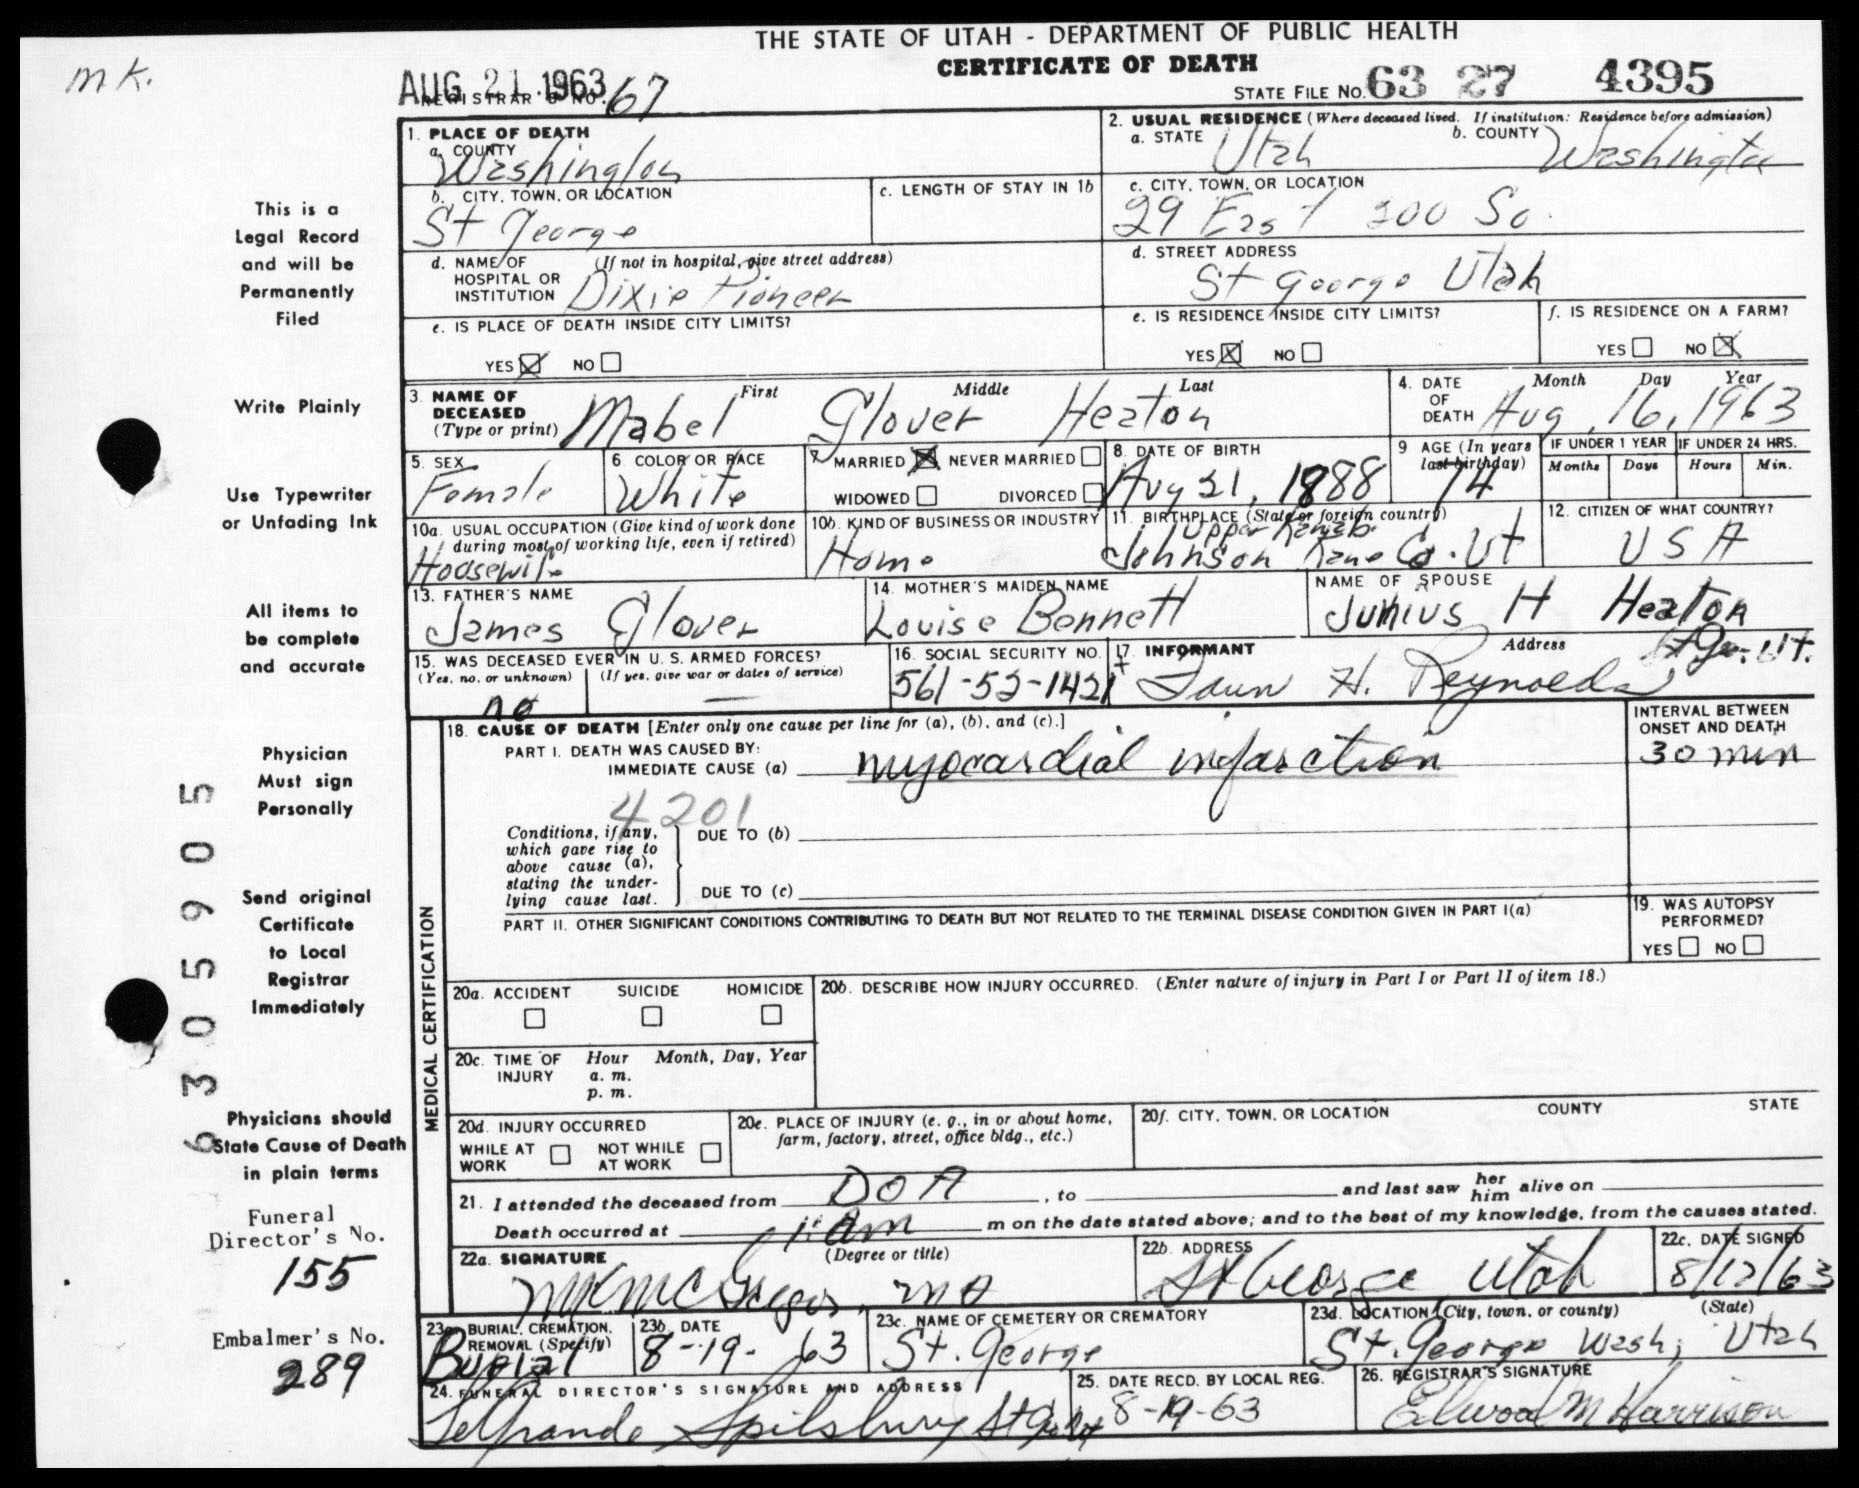 THE STATE OF UTAH - DEPARTMENT OF PUBLIC HEALTH
CERTIFICATE OF DEATH
mK.
AUG 21 1963
REGISTRAR'S NO. 67
STATE FILE NO. 63 27 4395
1. PLACE OF DEATH
a. COUNTY
Washington
2. USUAL RESIDENCE (Where deceased lived. If institution: Residence before admission)
a. STATE Utah b. COUNTY Washington
b. CITY, TOWN, OR LOCATION
St George
c. LENGTH OF STAY IN 1b
c. CITY, TOWN, OR LOCATION
29 East 200 So.
d. NAME OF HOSPITAL OR INSTITUTION (If not in hospital, give street address)
Dixie Pioneer
d. STREET ADDRESS
St George Utah
e. IS PLACE OF DEATH INSIDE CITY LIMITS?
YES ☒ NO ☐
e. IS RESIDENCE INSIDE CITY LIMITS?
YES ☒ NO ☐
f. IS RESIDENCE ON A FARM?
YES ☐ NO ☒
3. NAME OF DECEASED (Type or print) First Middle Last
Mabel Glover Heaton
4. DATE OF DEATH Month Day Year
Aug. 16, 1963
5. SEX
Female
6. COLOR OR RACE
White
7. MARRIED ☒ NEVER MARRIED ☐
WIDOWED ☐ DIVORCED ☐
8. DATE OF BIRTH
Aug 21, 1888
9 AGE (In years last birthday)
74
IF UNDER 1 YEAR
Months Days
IF UNDER 24 HRS.
Hours Min.
10a. USUAL OCCUPATION (Give kind of work done during most of working life, even if retired)
Housewife
10b. KIND OF BUSINESS OR INDUSTRY
Home
11. BIRTHPLACE (State or foreign country)
Upper Kanab
Johnson Kane Co. Ut
12. CITIZEN OF WHAT COUNTRY?
USA
13. FATHER'S NAME
James Glover
14. MOTHER'S MAIDEN NAME
Louise Bennett
NAME OF SPOUSE
Junius H Heaton
15. WAS DECEASED EVER IN U. S. ARMED FORCES?
(Yes, no, or unknown) (If yes, give war or dates of service)
no —
16. SOCIAL SECURITY NO.
561-52-1421
17. INFORMANT Address
H. Reynolds St Geo. Ut.
MEDICAL CERTIFICATION
18. CAUSE OF DEATH [Enter only one cause per line for (a), (b), and (c).]
PART I. DEATH WAS CAUSED BY:
IMMEDIATE CAUSE (a) myocardial infarction
INTERVAL BETWEEN ONSET AND DEATH
30 min
4201
Conditions, if any, which gave rise to above cause (a), stating the underlying cause last.
DUE TO (b)
DUE TO (c)
PART II. OTHER SIGNIFICANT CONDITIONS CONTRIBUTING TO DEATH BUT NOT RELATED TO THE TERMINAL DISEASE CONDITION GIVEN IN PART I(a)
19. WAS AUTOPSY PERFORMED?
YES ☐ NO ☐
20a. ACCIDENT SUICIDE HOMICIDE
☐ ☐ ☐
20b. DESCRIBE HOW INJURY OCCURRED. (Enter nature of injury in Part I or Part II of item 18.)
20c. TIME OF INJURY Hour Month, Day, Year
a. m.
p. m.
20d. INJURY OCCURRED
WHILE AT WORK ☐ NOT WHILE AT WORK ☐
20e. PLACE OF INJURY (e. g., in or about home, farm, factory, street, office bldg., etc.)
20f. CITY, TOWN, OR LOCATION COUNTY STATE
21. I attended the deceased from DOA, to and last saw her him alive on
Death occurred at am m on the date stated above; and to the best of my knowledge, from the causes stated.
22a. SIGNATURE (Degree or title)
MK McGregor, MD
22b. ADDRESS
St George Utah
22c. DATE SIGNED
8/17/63
23a. BURIAL, CREMATION, REMOVAL (Specify)
Burial
23b. DATE
8-19-63
23c. NAME OF CEMETERY OR CREMATORY
St. George
23d. LOCATION (City, town, or county) (State)
St. George Wash, Utah
24. FUNERAL DIRECTOR'S SIGNATURE AND ADDRESS
LeGrande Spilsbury
25. DATE RECD. BY LOCAL REG.
8-19-63
26. REGISTRAR'S SIGNATURE
Elwood M Harrison
This is a
Legal Record
and will be
Permanently
Filed
Write Plainly
Use Typewriter
or Unfading Ink
All items to
be complete
and accurate
Physician
Must sign
Personally
Send original
Certificate
to Local
Registrar
Immediately
Physicians should
State Cause of Death
in plain terms
Funeral
Director's No.
155
Embalmer's No.
289
6305905